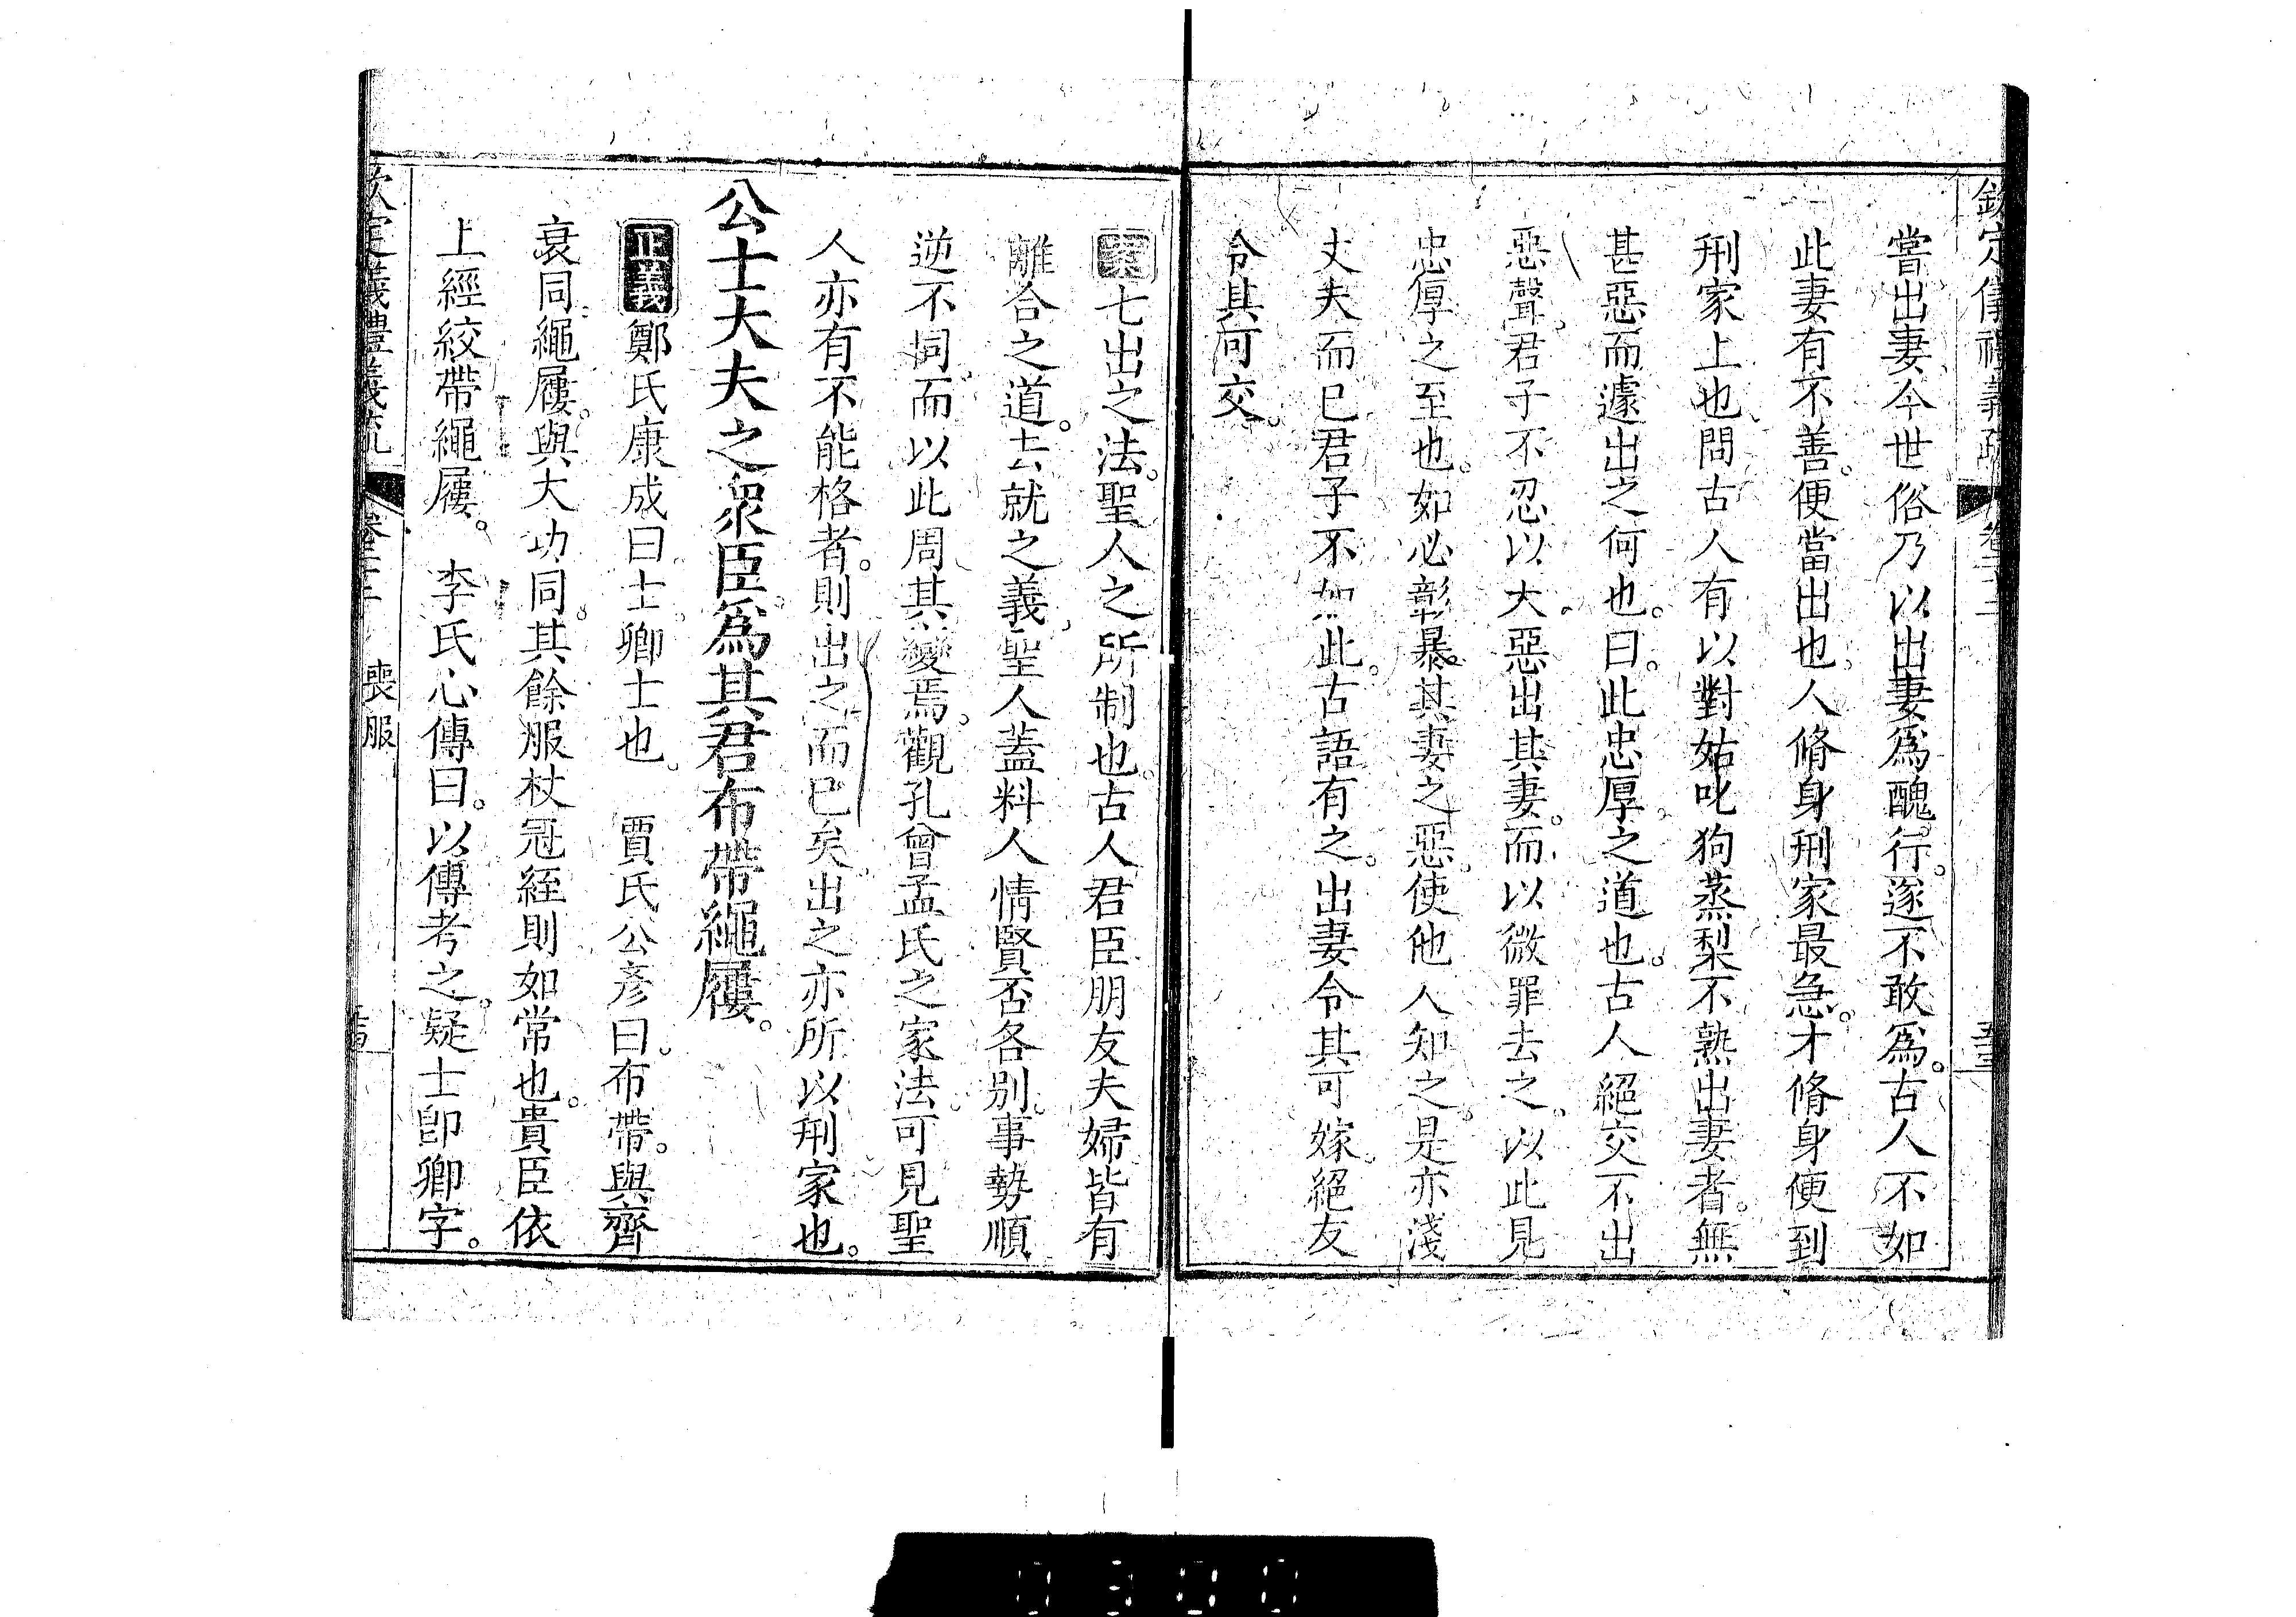 欽定儀禮義疏
當出妻今世俗乃以出妻爲醜行。遂不敢爲。古人不如
此妻有不善。便當出也。人脩身刑家最急。才脩身便到
刑家上也。問古人有以對姑叱狗蒸梨不熟出妻者。無
甚惡而遽出之何也。曰。此忠厚之道也。古人絕交不出
惡聲。君子不忍以大惡出其妻。而以微罪去之。以此見
忠厚之至也。如必彰暴其妻之惡。使他人知之。是亦淺
丈夫而已君子不如此。古語有之。出妻令其可嫁。絕友
令其可交。
案七出之法。聖人之所制也。古人君臣朋友夫婦皆有
離合之道。去就之義。聖人蓋料人情賢否各別。事勢順
逆不同。而以此周其變焉。觀孔曾孟氏之家法。可見聖
人亦有不能格者。則出之而已矣。出之亦所以刑家也。
公士大夫之衆臣爲其君布帶繩屨。
正義鄭氏康成曰士。卿士也。 賈氏公彥曰。布帶。與齊
衰同。繩屨。與大功同。其餘服杖冠絰則如常也。貴臣依
上絰絞帶繩屨。 李氏心傳曰。以傳考之。疑士卽卿字。
欽定儀禮義疏 卷二十 喪服
0300